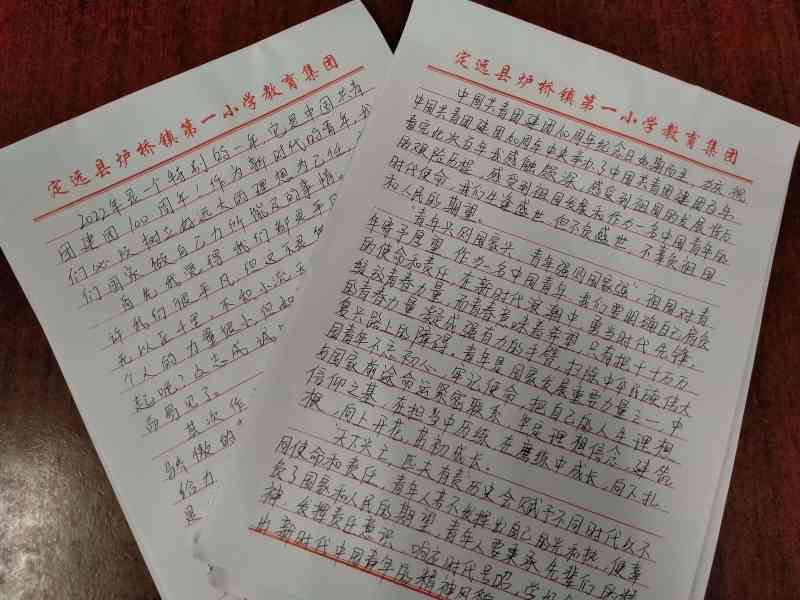 定远县炉桥镇第一小学教育集团
2022年是一个特别的一年,它是中国共青
团建团100周年,作为新时代的青年,我
们必须树立好远大的理想为己任
们国家做自己力所能及的事情。
首先我觉得我们都是平凡
许我们很平凡,但是不要
无以至千里,不积小流无
个人的力量很小但
起呢?众志成诚,
而易见了。
其次作
骄傲的
给力
是
定远县炉桥镇第一小学教育集团
中国共青团建团100周年纪念日如期而至,为庆祝
中国共青团建团100周年中央举办了中国共青团建团百年
看完此次百年我感触颇深,感受到祖国的发展背后
的艰险历程,感受到祖国发展未作为一名中国青年的
时代使命,我们生逢盛世,但不负盛世,不辜负祖国
和人民的期望。
青年兴则国家兴,青年强则国家强,祖国对青
年寄予厚望,作为一名中国青年,我们要明确自己肩负
的使命和责任,在新时代浪潮中,勇当时代先锋,
绽放青春力量,而青春意味着希望,只有把千千万万
的青春力量凝成强有力的手臂,扫除中华民族伟大
复兴路上的障碍。青年是国家发展重要力量之一,中
国青年不忘初心、牢记使命,把自己的人生理想
与国家前途命运紧密联系,坚定理想信念,建造
信仰之基,在担当中历练,在磨练中成长,向下扎
根,向上开花,茁初成长。
天下兴亡,匹夫有责历史会赋予不同时代以不
同使命和责任,青年人离不发挥出自己的光和热,便辜
负了国家和人民的期望,青年人要秉承先辈们的精
神,发挥责任意识,响应时代号召,学习
出新时代中国青年的精神风貌